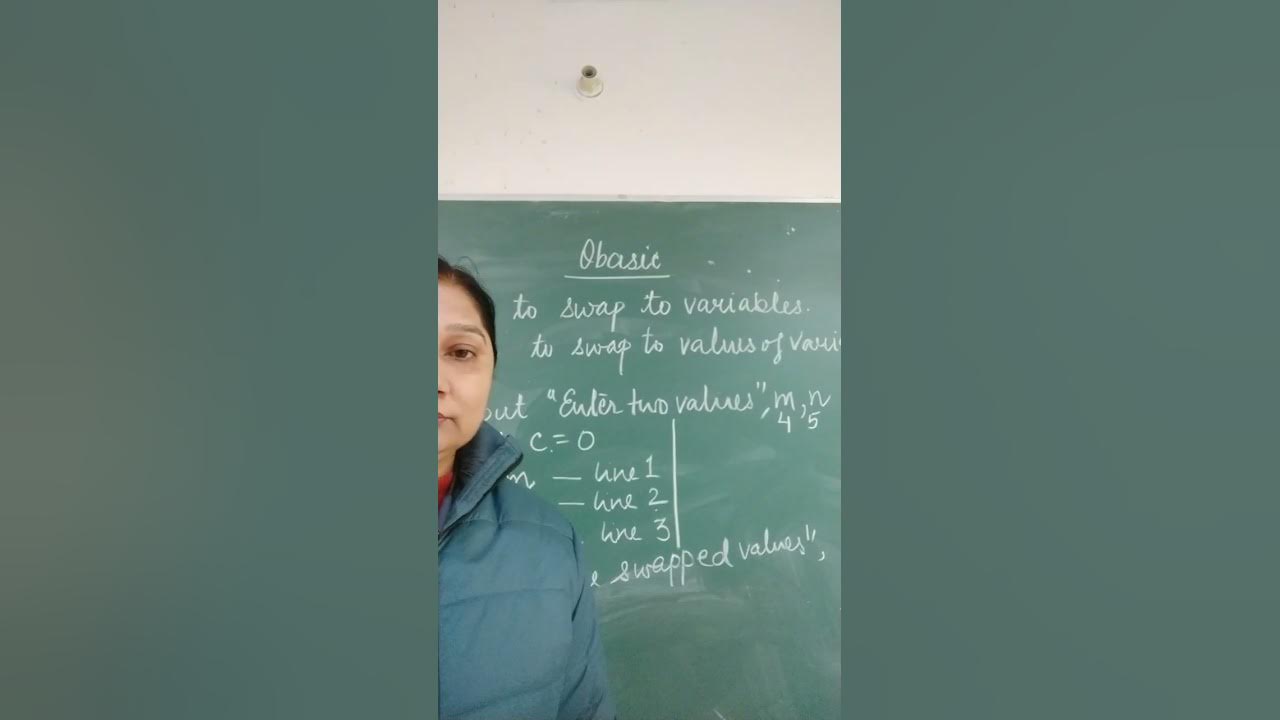 Qbasic
to swap to variables.
to swap to values of vari
put "Enter two values", m, n
4 5
c = 0
m — line 1
— line 2
line 3
e swapped values",